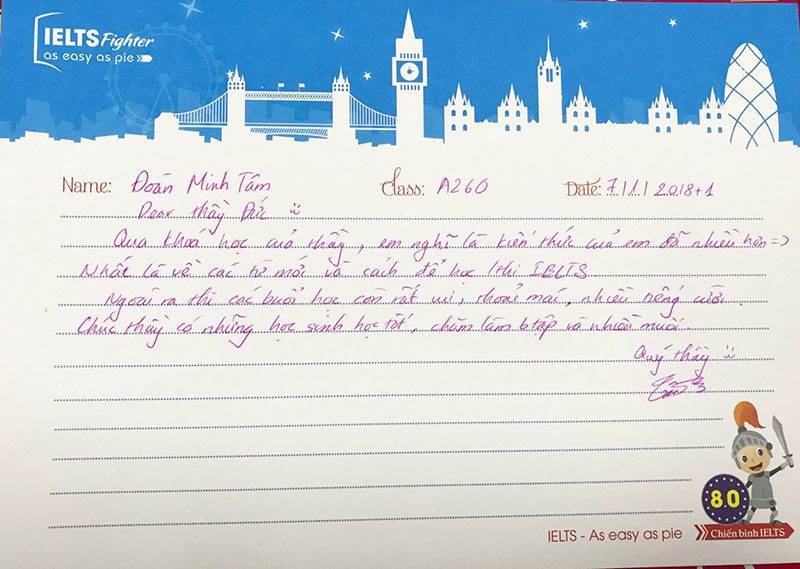 IELTS Fighter
as easy as pie
Name: Đoàn Minh Tâm Class: A260 Date: 7/1/2018+1
Dear thầy Đức
Qua khoá học của thầy, em nghĩ là kiến thức của em đã nhiều hơn =)
Nhất là về các từ mới và cách để học/thi IELTS.
Ngoài ra thì các buổi học còn rất vui, thoải mái, nhiều tiếng cười.
Chúc thầy có những học sinh học tốt, chăm làm btập và nhiều muối.
Quý thầy
8.0
IELTS - As easy as pie
Chiến binh IELTS